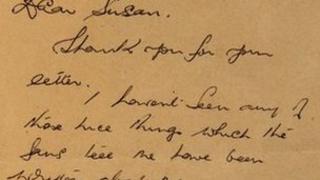 Dear Susan.
Thank you for your
letter.
I haven't seen any of
those nice things which the
fans have been